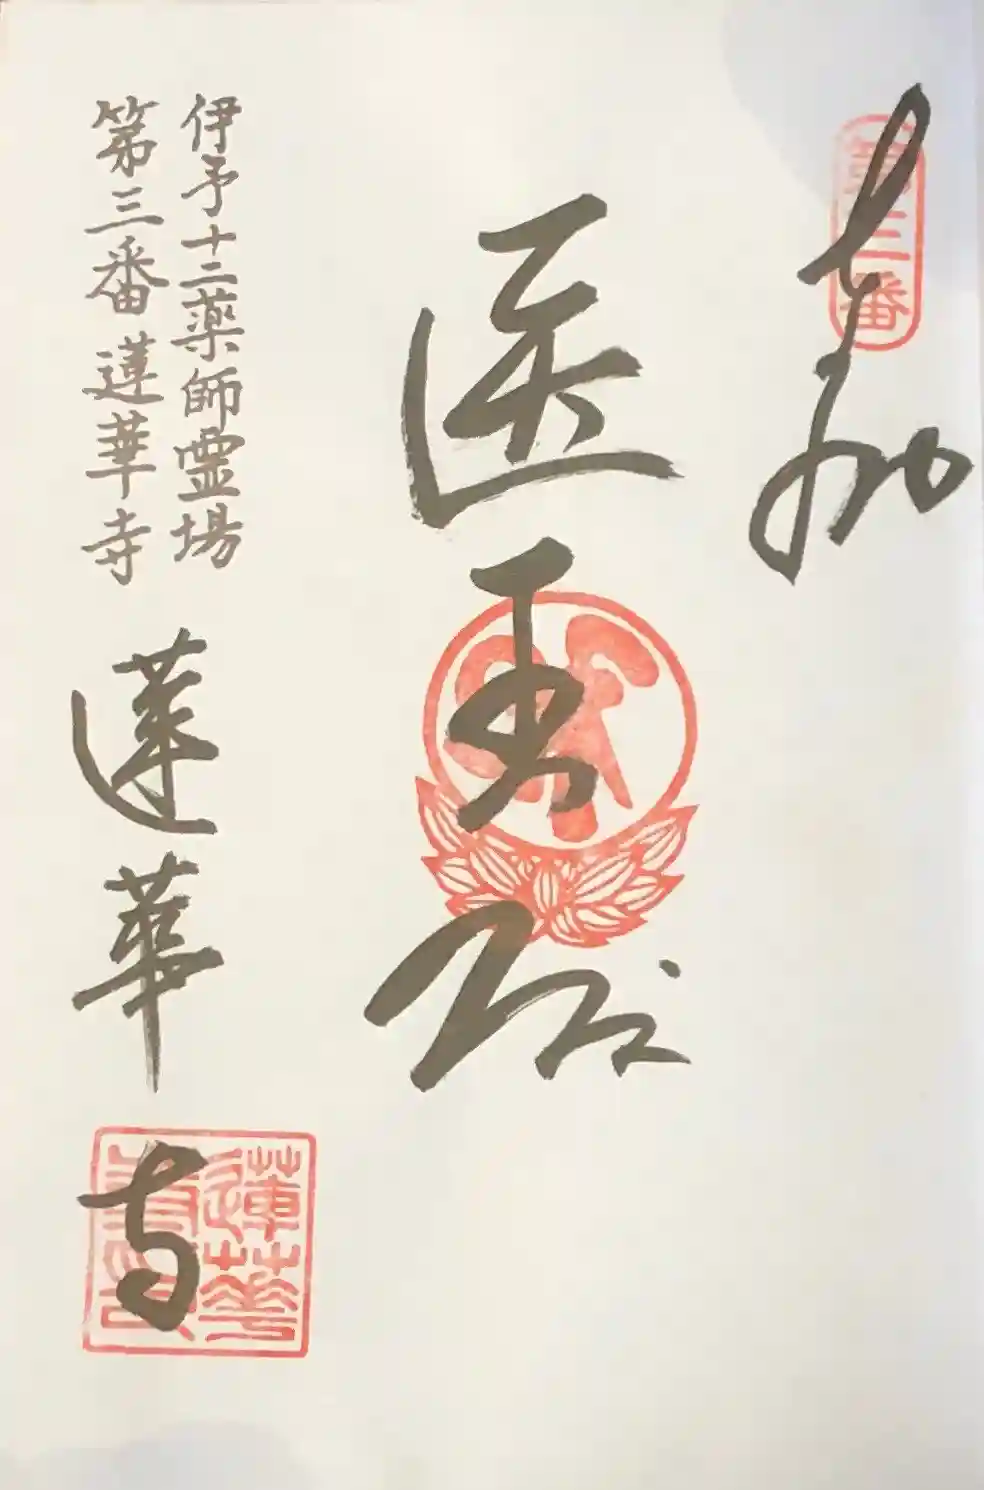 奉拝
第三番
医王殿
伊予十二薬師霊場
第三番蓮華寺
蓮華寺
蓮華寺印